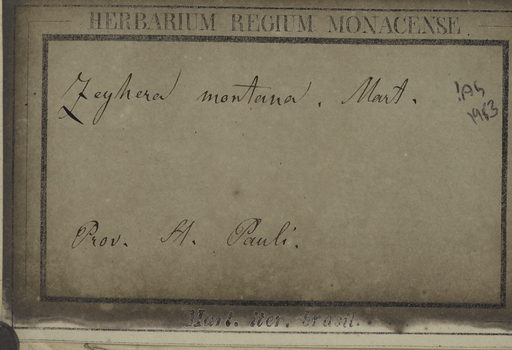 HERBARIUM REGIUM MONACENSE
Zeyhera montana. Mart.
!AG
1983
Prov. St. Pauli.
Mart. iter. brasil.